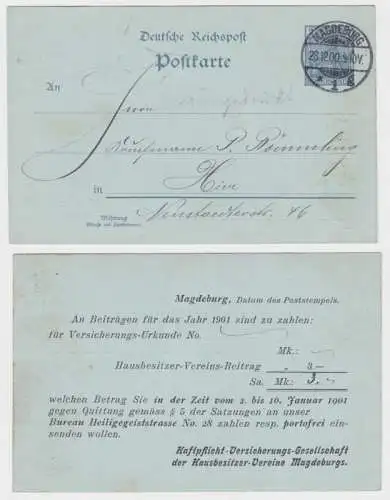 Deutsche Reichspost
Postkarte
MAGDEBURG
28.12.00. 9-10V.
* 1 g
An
Herrn
Kaufmann P.
Hier
in
Wohnung
(Straße und Hausnummer)
Neustädterstr. 46
Magdeburg, Datum des Poststempels.
An Beiträgen für das Jahr 1901 sind zu zahlen:
für Versicherungs-Urkunde No.
Mk.: —
Hausbesitzer-Vereins-Beitrag „ 3.—
Sa. Mk.: 3.—
welchen Betrag Sie in der Zeit vom 2. bis 10. Januar 1901
gegen Quittung gemäss § 5 der Satzungen an unser
Bureau Heiligegeiststrasse No. 28 zahlen resp. portofrei ein-
senden wollen.
Haftpflicht-Versicherungs-Gesellschaft
der Hausbesitzer-Vereine Magdeburgs.